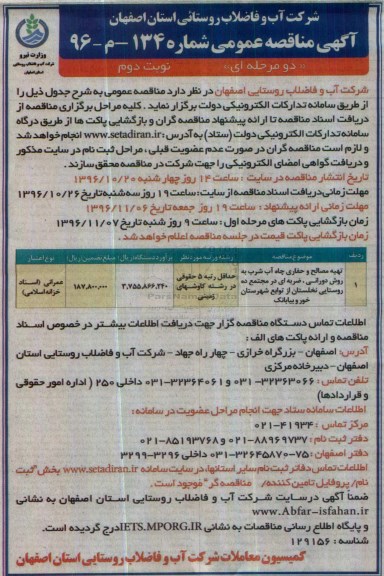 شرکت آب و فاضلاب روستائی استان اصفهان
آگهی مناقصه عمومی شماره ۱۳۴-م-۹۶
«دو مرحله ای» نوبت دوم
وزارت نیرو
شرکت آب و فاضلاب روستایی استان اصفهان
شرکت آب و فاضلاب روستایی اصفهان در نظر دارد مناقصه عمومی به شرح جدول ذیل را
از طریق سامانه تدارکات الکترونیکی دولت برگزار نماید. کلیه مراحل برگزاری مناقصه از
دریافت اسناد مناقصه تا ارائه پیشنهاد مناقصه گران و بازگشایی پاکت ها از طریق درگاه
سامانه تدارکات الکترونیکی دولت (ستاد) به آدرس: www.setadiran.ir انجام خواهد شد
و لازم است مناقصه گران در صورت عدم عضویت قبلی، مراحل ثبت نام در سایت مذکور
و دریافت گواهی امضای الکترونیکی را جهت شرکت در مناقصه محقق سازند.
تاریخ انتشار مناقصه در سایت: ساعت ۱۴ روز چهارشنبه ۱۳۹۶/۱۰/۲۰
مهلت زمانی دریافت اسناد مناقصه از سایت: ساعت ۱۹ روز سه شنبه تاریخ ۱۳۹۶/۱۰/۲۶
مهلت زمانی ارائه پیشنهاد: ساعت ۱۹ روز جمعه تاریخ ۱۳۹۶/۱۱/۰۶
زمان بازگشایی پاکت های مرحله اول: ساعت ۹ روز شنبه تاریخ ۱۳۹۶/۱۱/۰۷
زمان بازگشایی پاکت قیمت در جلسه مناقصه اعلام خواهد شد.
ردیف موضوع مناقصه رشته و رتبه مورد نظر برآورد دستگاه/ریال مبلغ تضمین/ریال نوع اعتبار
۱ تهیه مصالح و حفاری چاه آب شرب به روش دورانی، ضربه ای در مجتمع ده روستایی نخلستان از توابع شهرستان خور و بیابانک حداقل رتبه ۵ حقوقی در رشته کاوشهای زمینی ۳,۷۵۵,۸۶۶,۲۴۰ ۱۸۷,۸۰۰,۰۰۰ عمرانی (اسناد خزانه اسلامی)
اطلاعات تماس دستگاه مناقصه گزار جهت دریافت اطلاعات بیشتر در خصوص اسناد
مناقصه و ارائه پاکت های الف:
آدرس: اصفهان - بزرگراه خرازی - چهار راه جهاد - شرکت آب و فاضلاب روستایی استان
اصفهان - دبیرخانه مرکزی
تلفن تماس: ۳۲۳۶۳۰۶۶-۰۳۱ و ۳۲۳۶۴۰۶۱-۰۳۱ داخلی ۲۵۰ (اداره امور حقوقی
و قراردادها)
اطلاعات سامانه ستاد جهت انجام مراحل عضویت در سامانه:
مرکز تماس: ۴۱۹۳۴-۰۲۱
دفتر ثبت نام: ۸۸۹۶۹۷۳۷-۰۲۱ و ۸۵۱۹۳۷۶۸-۰۲۱
دفتر استان اصفهان: ۷۵-۳۲۶۴۵۸۷۰-۰۳۱ داخلی ۳۲۹۶-۳۲۹۹
اطلاعات تماس دفاتر ثبت نام سایر استانها، در سایت سامانه www.setadiran.ir بخش "ثبت
نام/ پروفایل تامین کننده/ مناقصه گر" موجود است.
ضمناً آگهی در سایت شرکت آب و فاضلاب روستایی استان اصفهان به نشانی
www.Abfar-isfahan.ir
و پایگاه اطلاع رسانی مناقصات به نشانی IETS.MPORG.IR درج گردیده است.
شناسه: ۱۲۹۱۵۶
کمیسیون معاملات شرکت آب و فاضلاب روستایی استان اصفهان